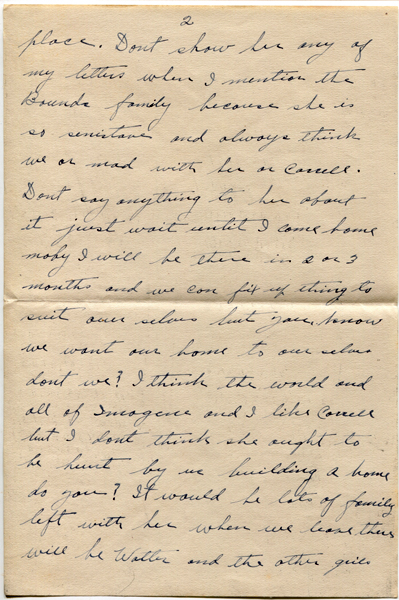 2
place. Dont show her any of
my letters when I mention the
Bounds family because she is
so senistave and always think
we or mad with her or Correll.
Dont say anything to her about
it just wait until I come home
maby I will be there in 2 or 3
months and we can fix up thing to
suit ourselves but you know
we want our home to our selves
dont we? I think the world and
all of Imogene and I like Correll
but I dont think she ought to
be hurt by us building a home
do you? It would be lots of family
left with her when we leave there
will be Walter and the other girls